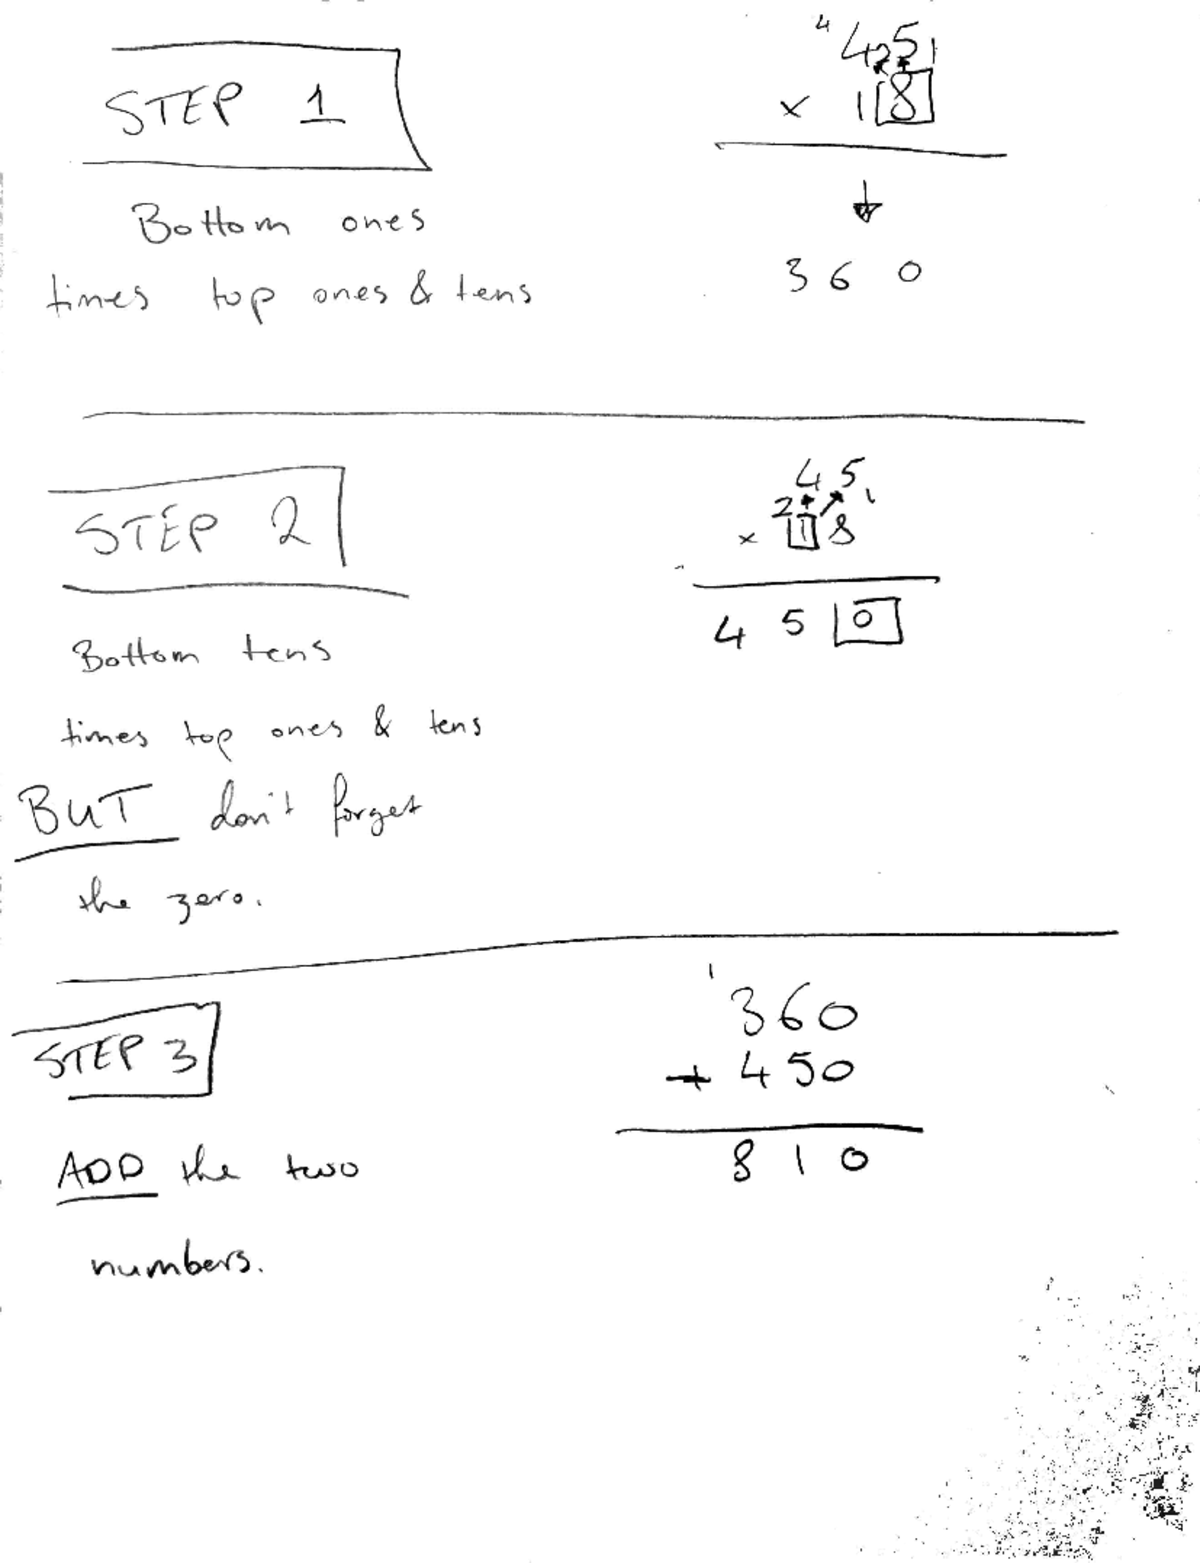 STEP 1
Bottom ones
times top ones & tens
4
45
2 1
x 18
3 6 0
STEP 2
Bottom tens
times top ones & tens
BUT don't forget
the zero.
4 5
2 1
x 1 8
4 5 0
STEP 3
ADD the two
numbers.
1
360
+ 450
8 1 0